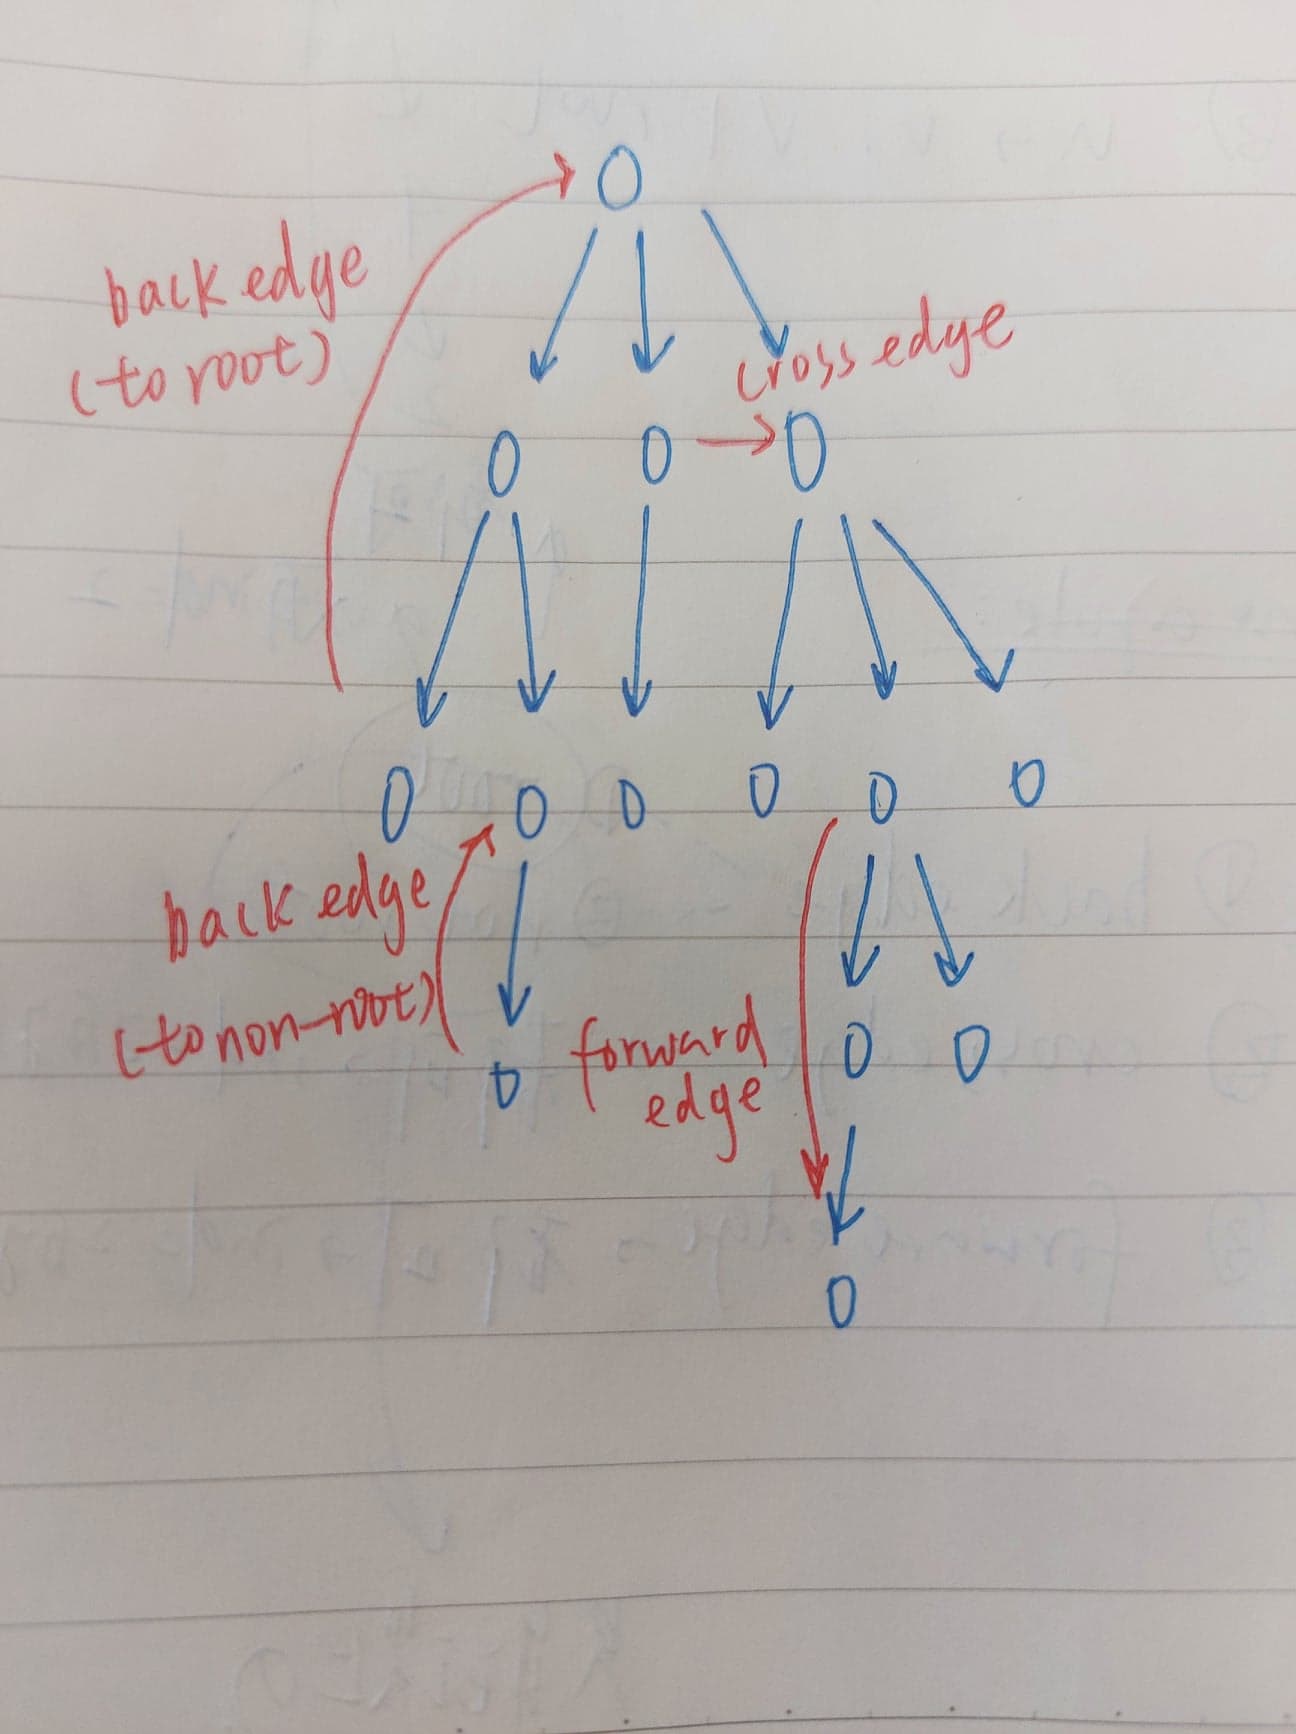 back edge
(to root)
cross edge
back edge
(to non-root)
forward
edge